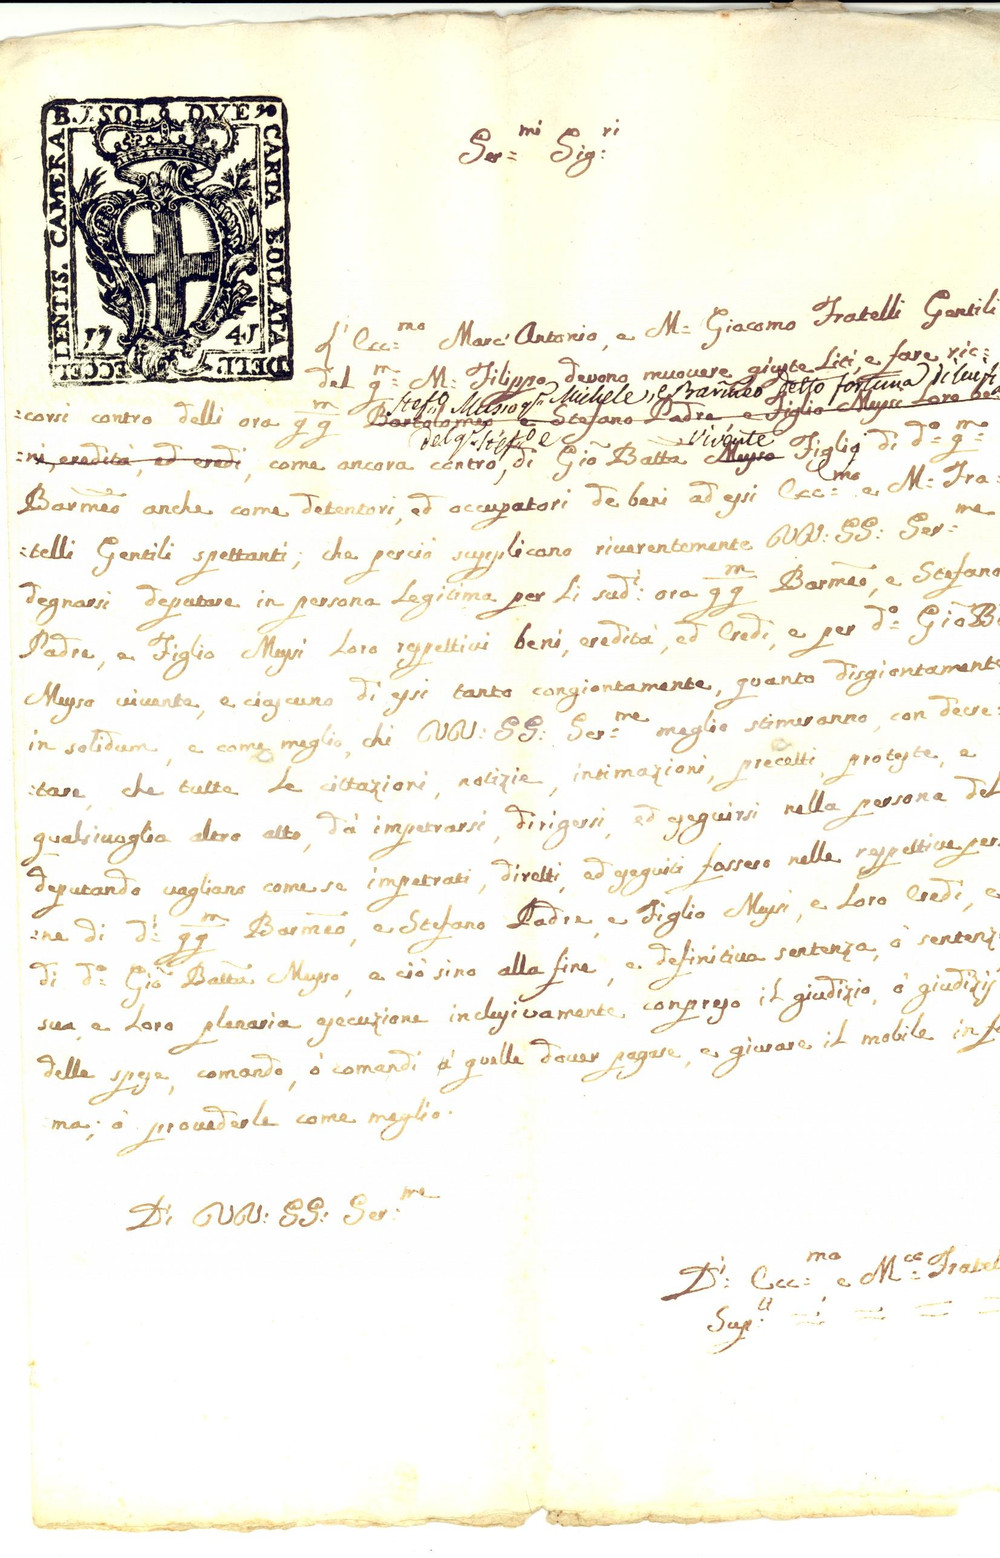 B. 7 SOL. 9 DVE
CARTA BOLLATA
DELL'
ECCEL
LENTIS. CAMERA
17 41
Ser:mi Sig:ri
L'Ecc:mo Marc'Antonio, e M: Giacomo Fratelli Gentili
del q:m M: Filippo devono muovere giuste Liti, e fare ric:
Stef:o Musso q:m Michele, e Barmeo detto fortuna
:corsi contro delli ora qq:m Bartolomeo e Stefano Padre e Figlio Mussi Loro be
del q: Stef:o e vivente
:ni, eredità, ed eredi, come ancora contro, di Gio Batta Musso Figlio di d:o q:m
Barmeo anche come detentori, ed occupatori de beni ad essi Ecc:mo e M: Fra:
:telli Gentili spettanti; che perciò supplicano riverentemente VV: SS: Ser:me
degnarsi deputare in persona Legitima per Li sud:i ora qq:m Barmeo, e Stefano
Padre, e Figlio Mussi Loro rispettivi beni, eredità, ed Eredi, e per d:o Gio B
Musso vivente, e ciascuno di essi tanto congiontamente, quanto disgiontamente
in solidum, e come meglio, chi VV: SS: Ser:me meglio stimeranno, con decre:
:tare, che tutte le cittazioni, notizie, intimazioni, precetti, proteste, e
qualsivoglia altro atto, da impetrarsi, dirigersi, ed eseguirsi nella persona del
deputando vagliano come se impetrati, diretti, ed eseguiti fossero nelle rispettive per
:ne di d:i qq:m Barmeo, e Stefano Padre, e Figlio Mussi, e Loro Eredi, e
di d:o Gio Batta Musso, e ciò sino alla fine, e definitiva sentenza, ò sentenz
sua, e Loro plenaria esecuzione inclusivamente compreso il giudizio, ò giudizij
delle spese, comando, ò comandi à quelle dover pagare, e giurare il mobile in f
ma; ò provederle come meglio.
Di VV: SS: Ser:me
D:i Ecc:mo e M:ce Fratel
Sup:ti